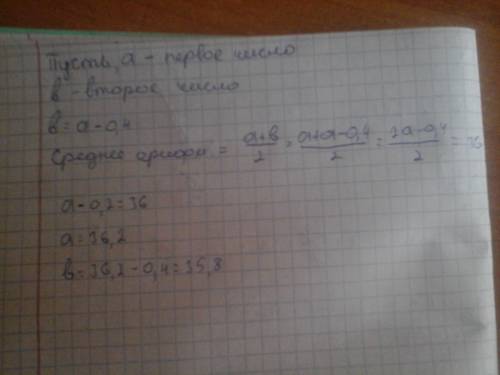 Пусть, а - первое число
в - второе число
в = а - 0,4
Среднее арифм = а+в/2 = а+а-0,4/2 = 2а-0,4/2 = 36
а - 0,2 = 36
а = 36,2
в = 36,2 - 0,4 = 35,8